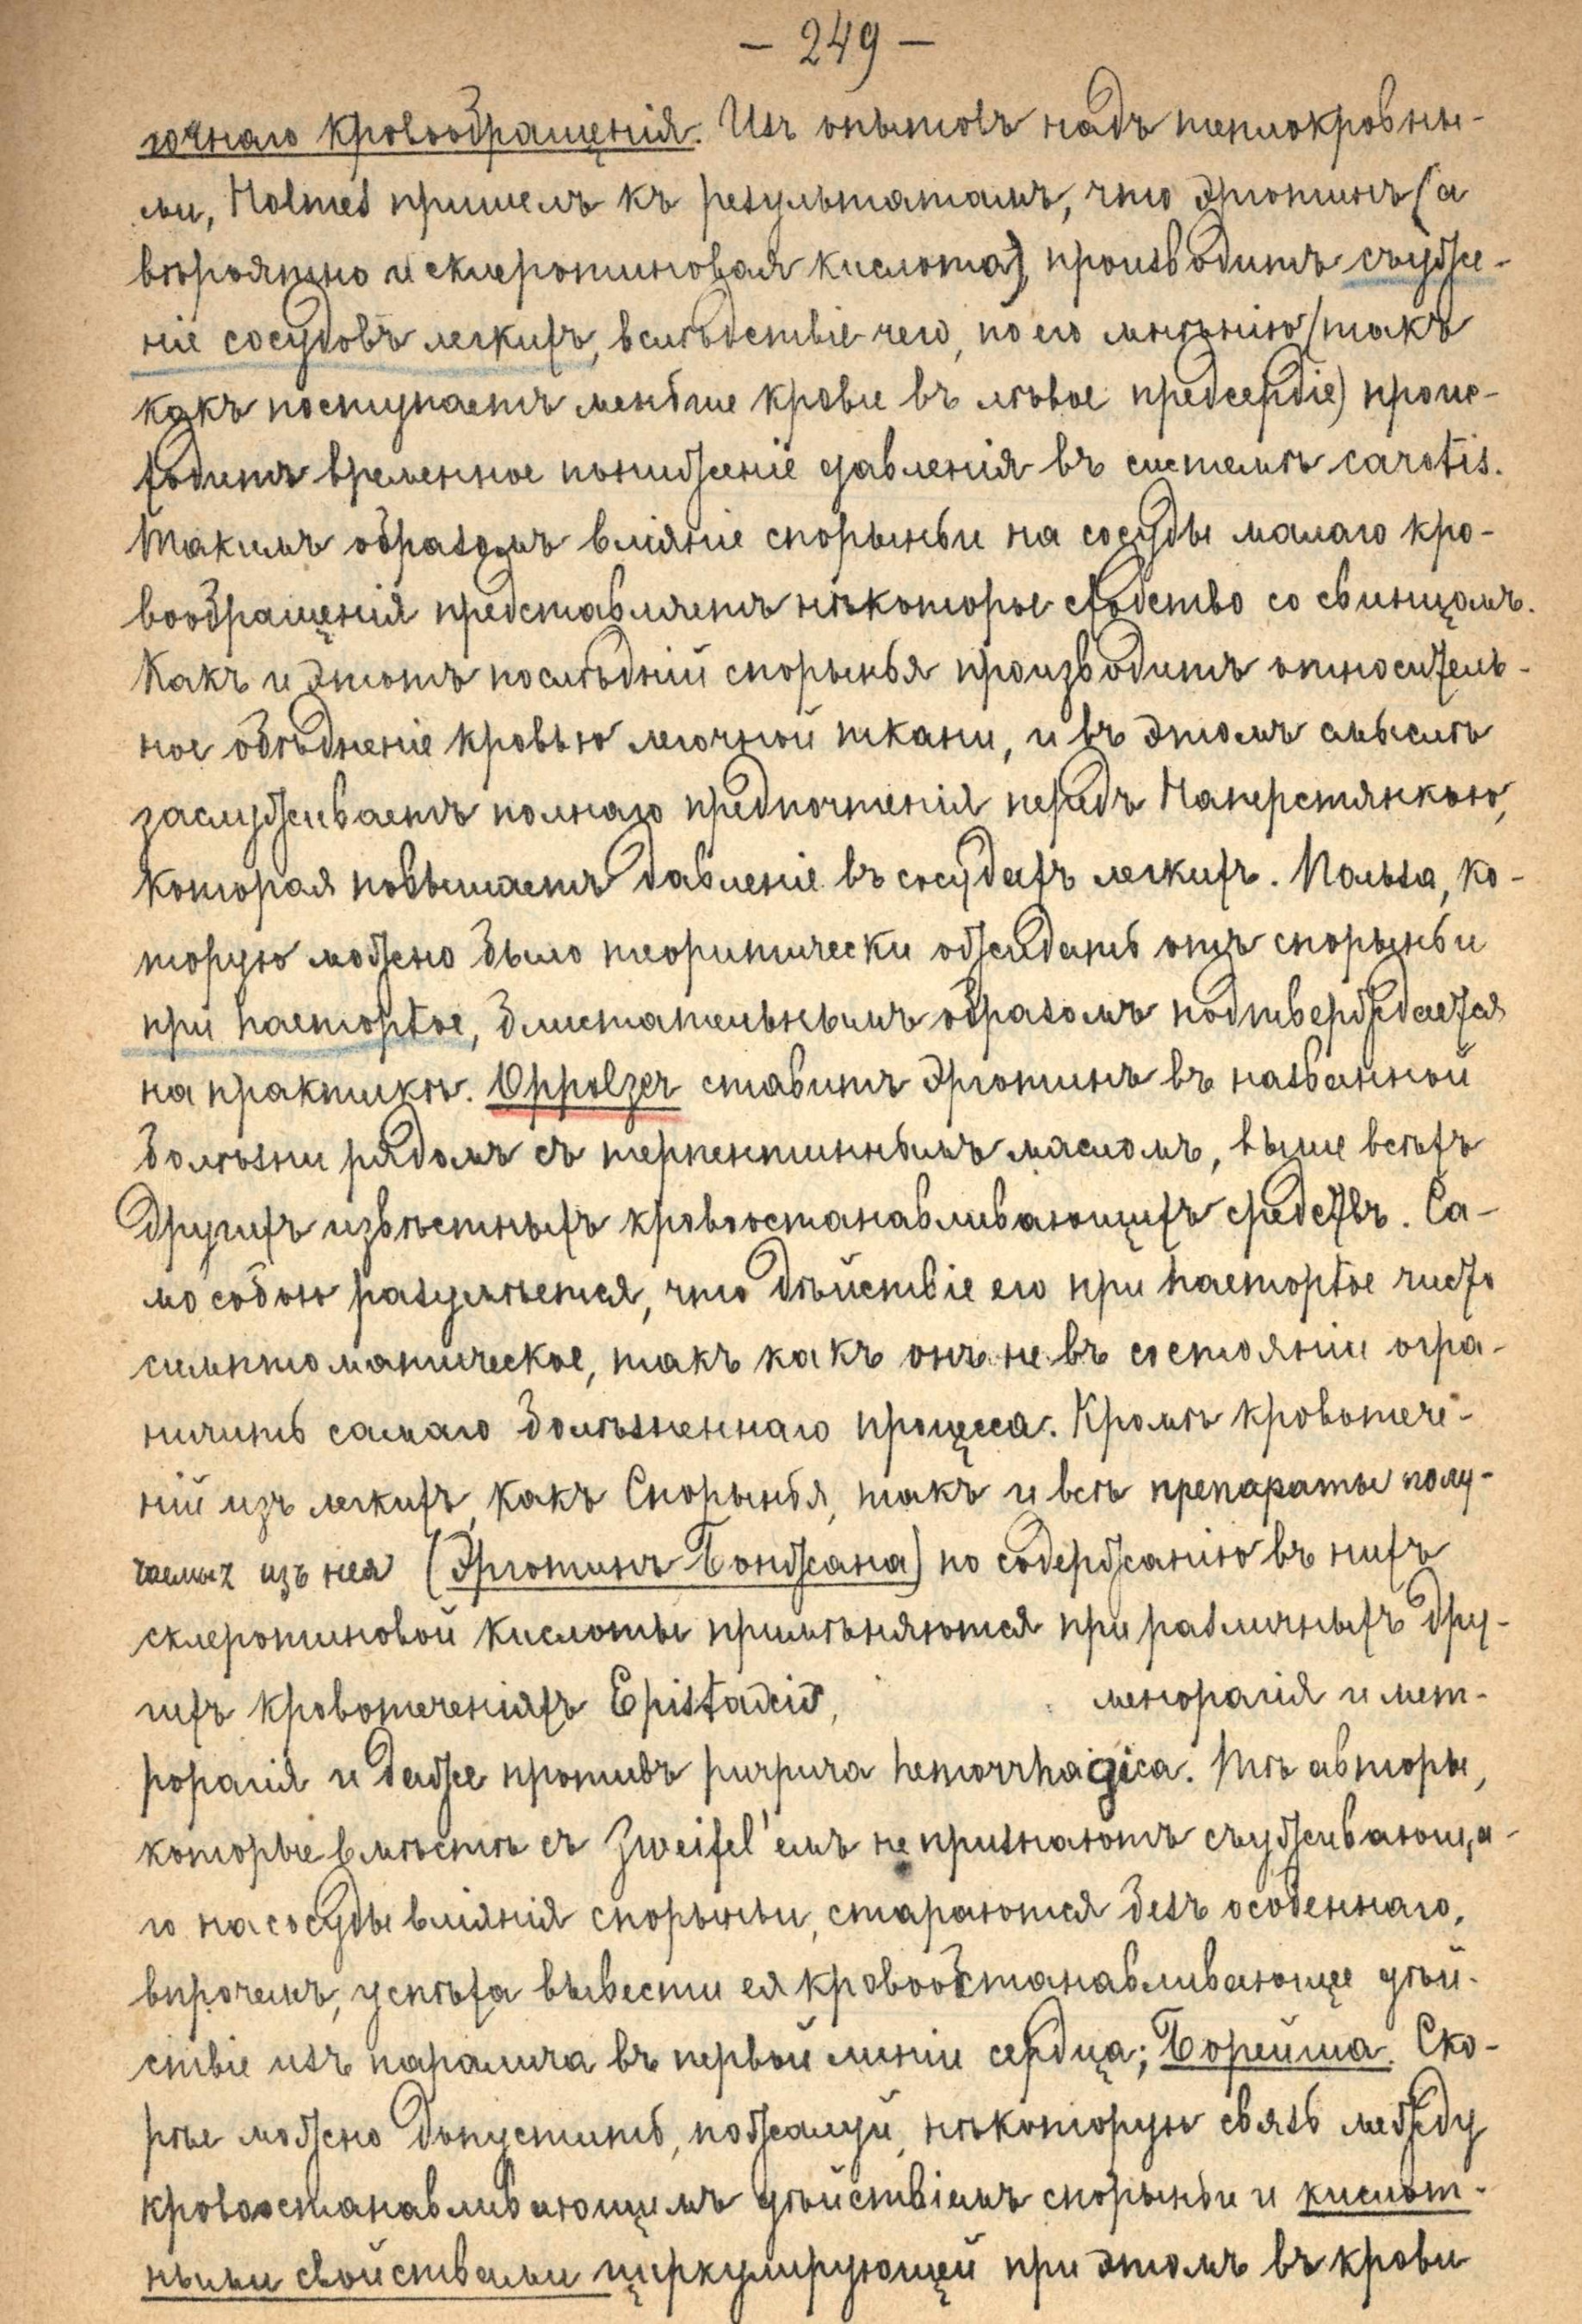 — 249 —
гочнаго кровообращенія. Изъ опытовъ надъ теплокровны-
ми, Holmes пришелъ къ результатамъ, что эрготинъ (а
вѣроятно и склеротиновая кислота), производитъ съуже-
ніе сосудовъ легкихъ, вслѣдствіе чего, по его мнѣнію (такъ
какъ поступаетъ меньше крови въ лѣвое предсердіе) проис-
ходитъ временное пониженіе давленія въ системѣ carotis.
Такимъ образомъ вліяніе спорыньи на сосуды малаго кро-
вообращенія представляетъ нѣкоторое сходство со свинцомъ.
Какъ и этотъ послѣдній спорынья производитъ относитель-
ное обѣдненіе кровью легочной ткани, и въ этомъ смыслѣ
заслуживаетъ полнаго предпочтенія передъ Наперстянкою,
которая повышаетъ давленіе въ сосудахъ легкихъ. Польза, ко-
торую можно было теоритически ожидать отъ спорыньи
при haemoptoe, блистательнымъ образомъ подтверждается
на практикѣ. Oppolzer ставитъ эрготинъ въ названной
болѣзни рядомъ съ терпентиннымъ масломъ, выше всѣхъ
другихъ извѣстныхъ кровоостанавливающихъ средствъ. Са-
мо собою разумѣется, что дѣйствіе его при haemoptoe чисто
симптоматическое, такъ какъ онъ не въ состояніи огра-
ничить самаго болѣзненнаго процесса. Кромѣ кровотече-
ній изъ легкихъ, какъ Спорынья, такъ и всѣ препараты полу-
чаемых изъ нея (Эрготинъ Бонжана) по содержанію въ нихъ
склеротиновой кислоты примѣняются при различныхъ дру-
гихъ кровотеченіяхъ Epistaxis, менорагія и мет-
рорагія и даже противъ purpura hemorrhagica. Тѣ авторы,
которые вмѣстѣ съ Zweifel'емъ не признаютъ съуживающа-
го на сосуды вліянія спорыньи, стараются безъ особеннаго,
впрочемъ, успѣха вывести ея кровоостанавливающее дѣй-
ствіе изъ паралича въ первой линіи сердца; Борейша. Ско-
рѣе можно допустить, пожалуй, нѣкоторую связь между
кровоостанавливающимъ дѣйствіемъ спорыньи и кислот-
ными свойствами циркулирующей при этомъ въ крови